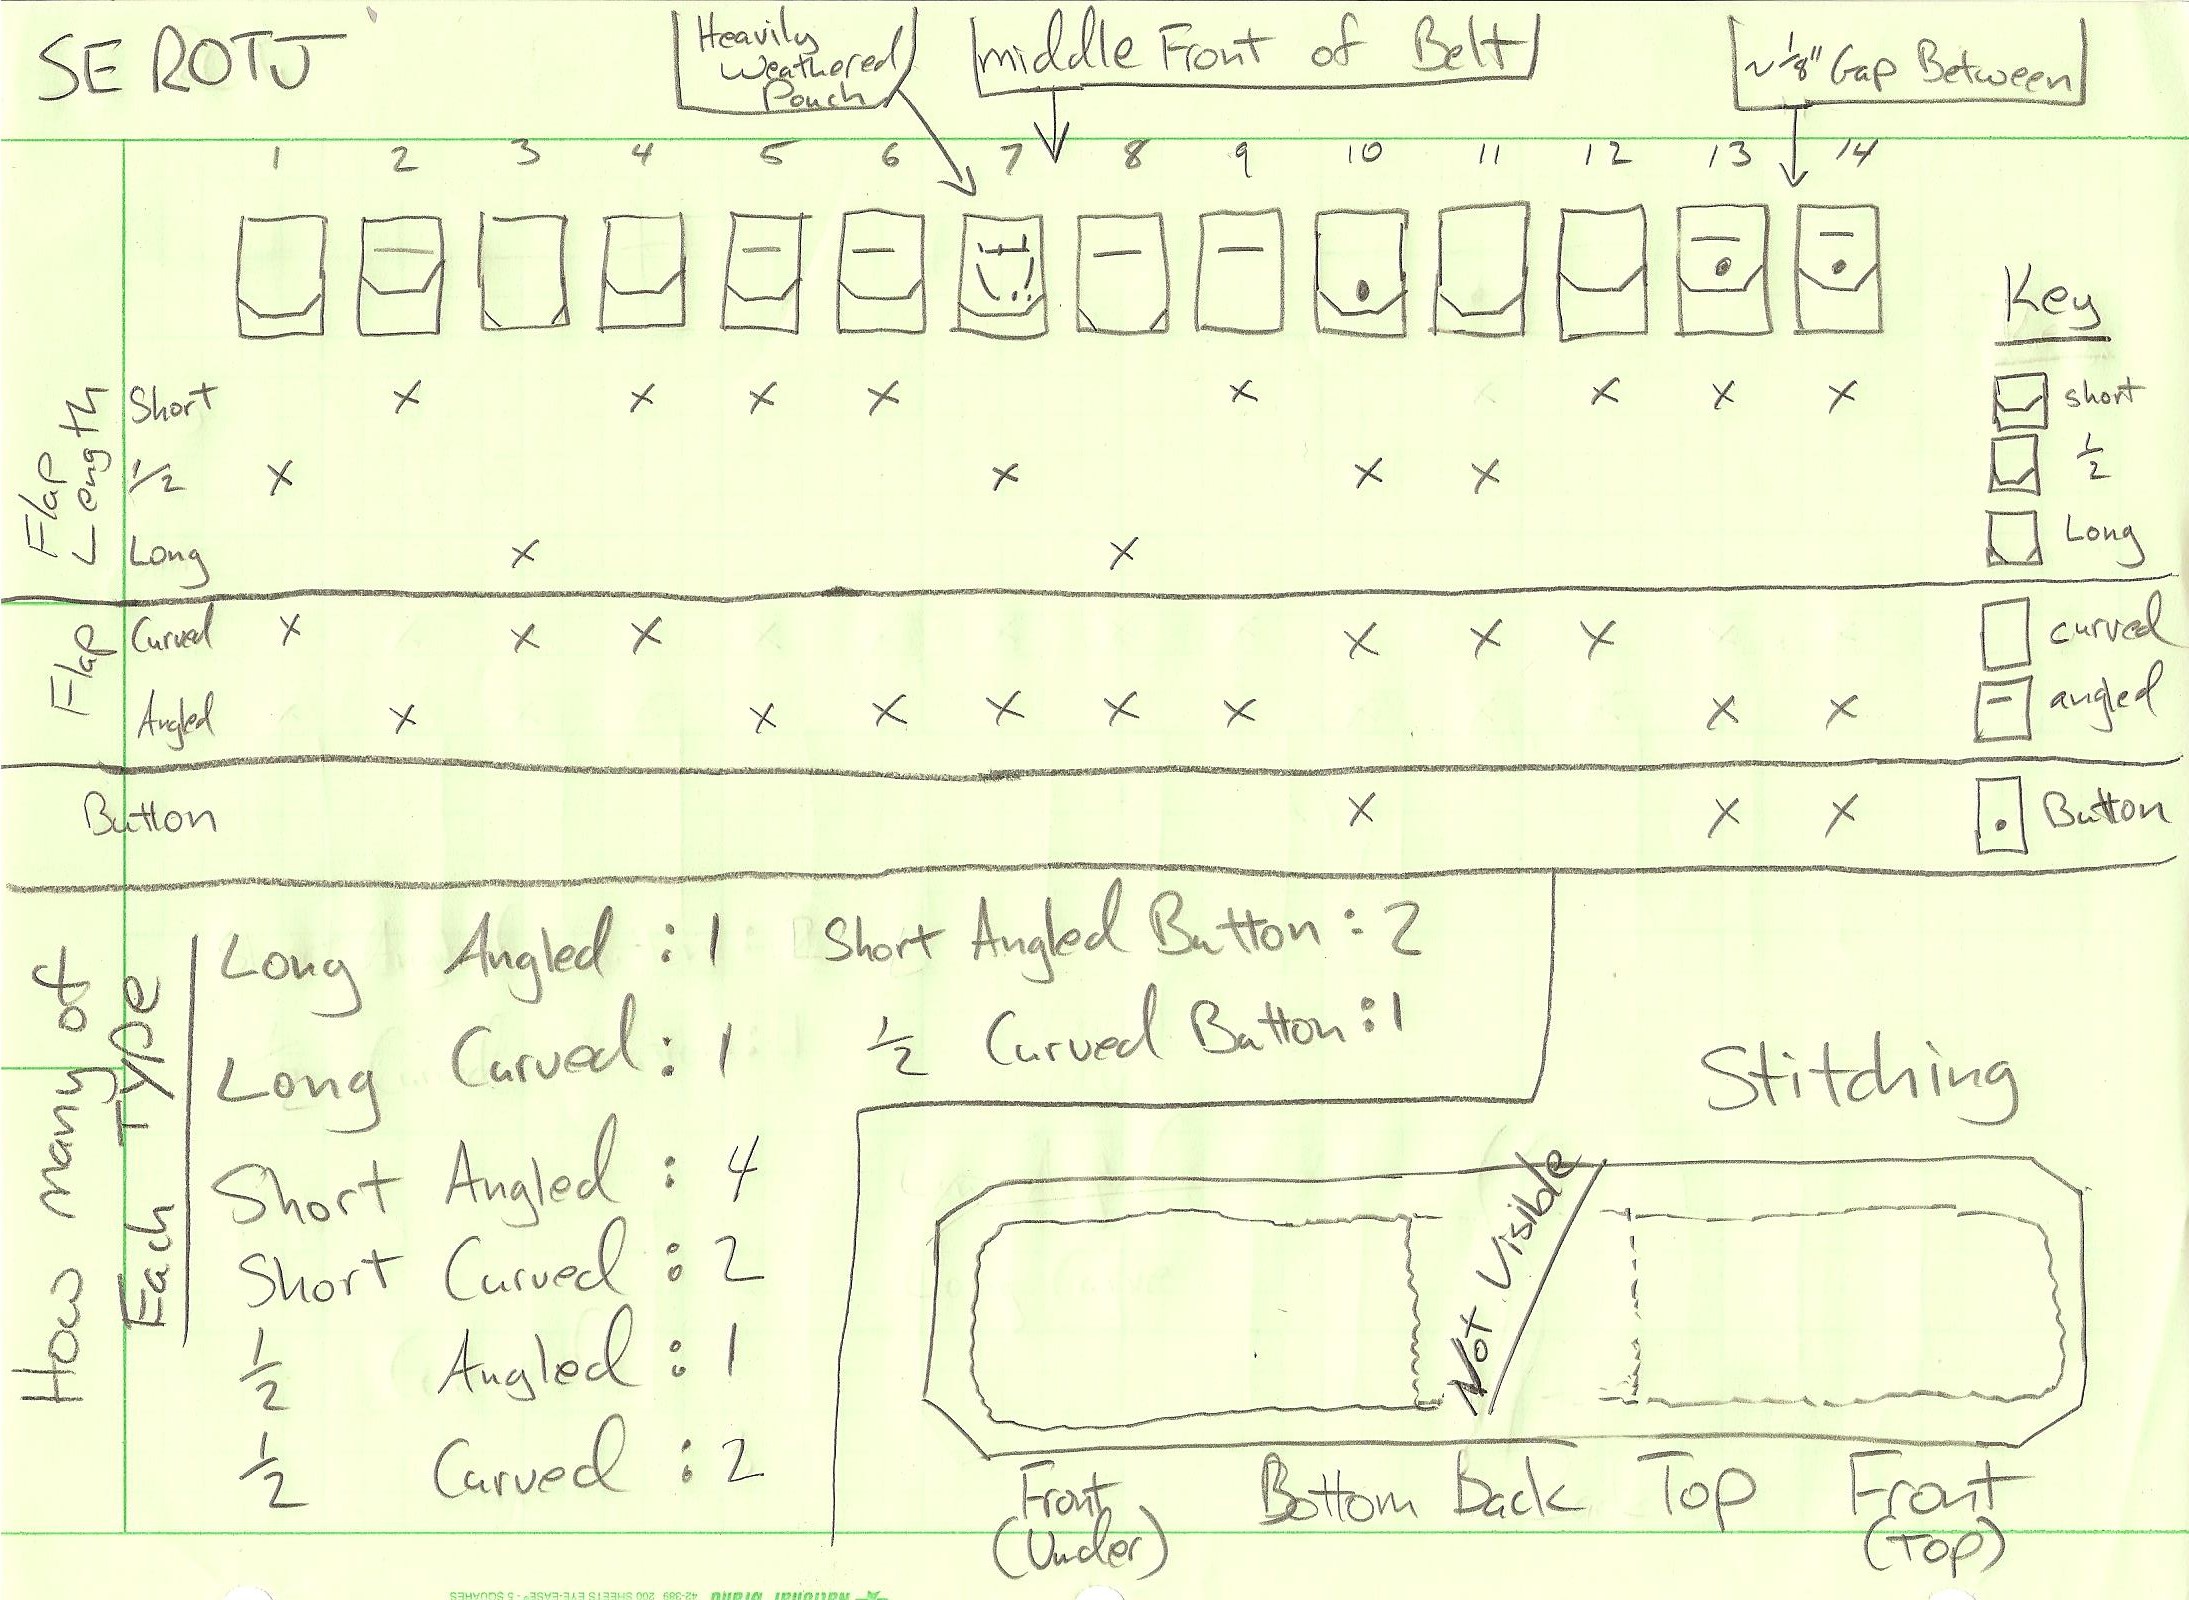 SE ROTJ
Heavily
Weathered
Pouch
Middle Front of Belt
~ 1/8" Gap Between
1 2 3 4 5 6 7 8 9 10 11 12 13 14
Key
Flap
Length
Short X X X X X X X X short
1/2 X X X X 1/2
Long X X Long
Flap
Curved X X X X X X curved
Angled X X X X X X X X angled
Button X X X Button
How many of
Each Type
Long Angled : 1 Short Angled Button : 2
Long Curved : 1 1/2 Curved Button : 1
Short Angled : 4
Short Curved : 2
1/2 Angled : 1
1/2 Curved : 2
Stitching
Not Visible
Front
(Under)
Bottom Back Top Front
(Top)
National Brand 42-389 200 SHEETS EYE-EASE® - 5 SQUARES